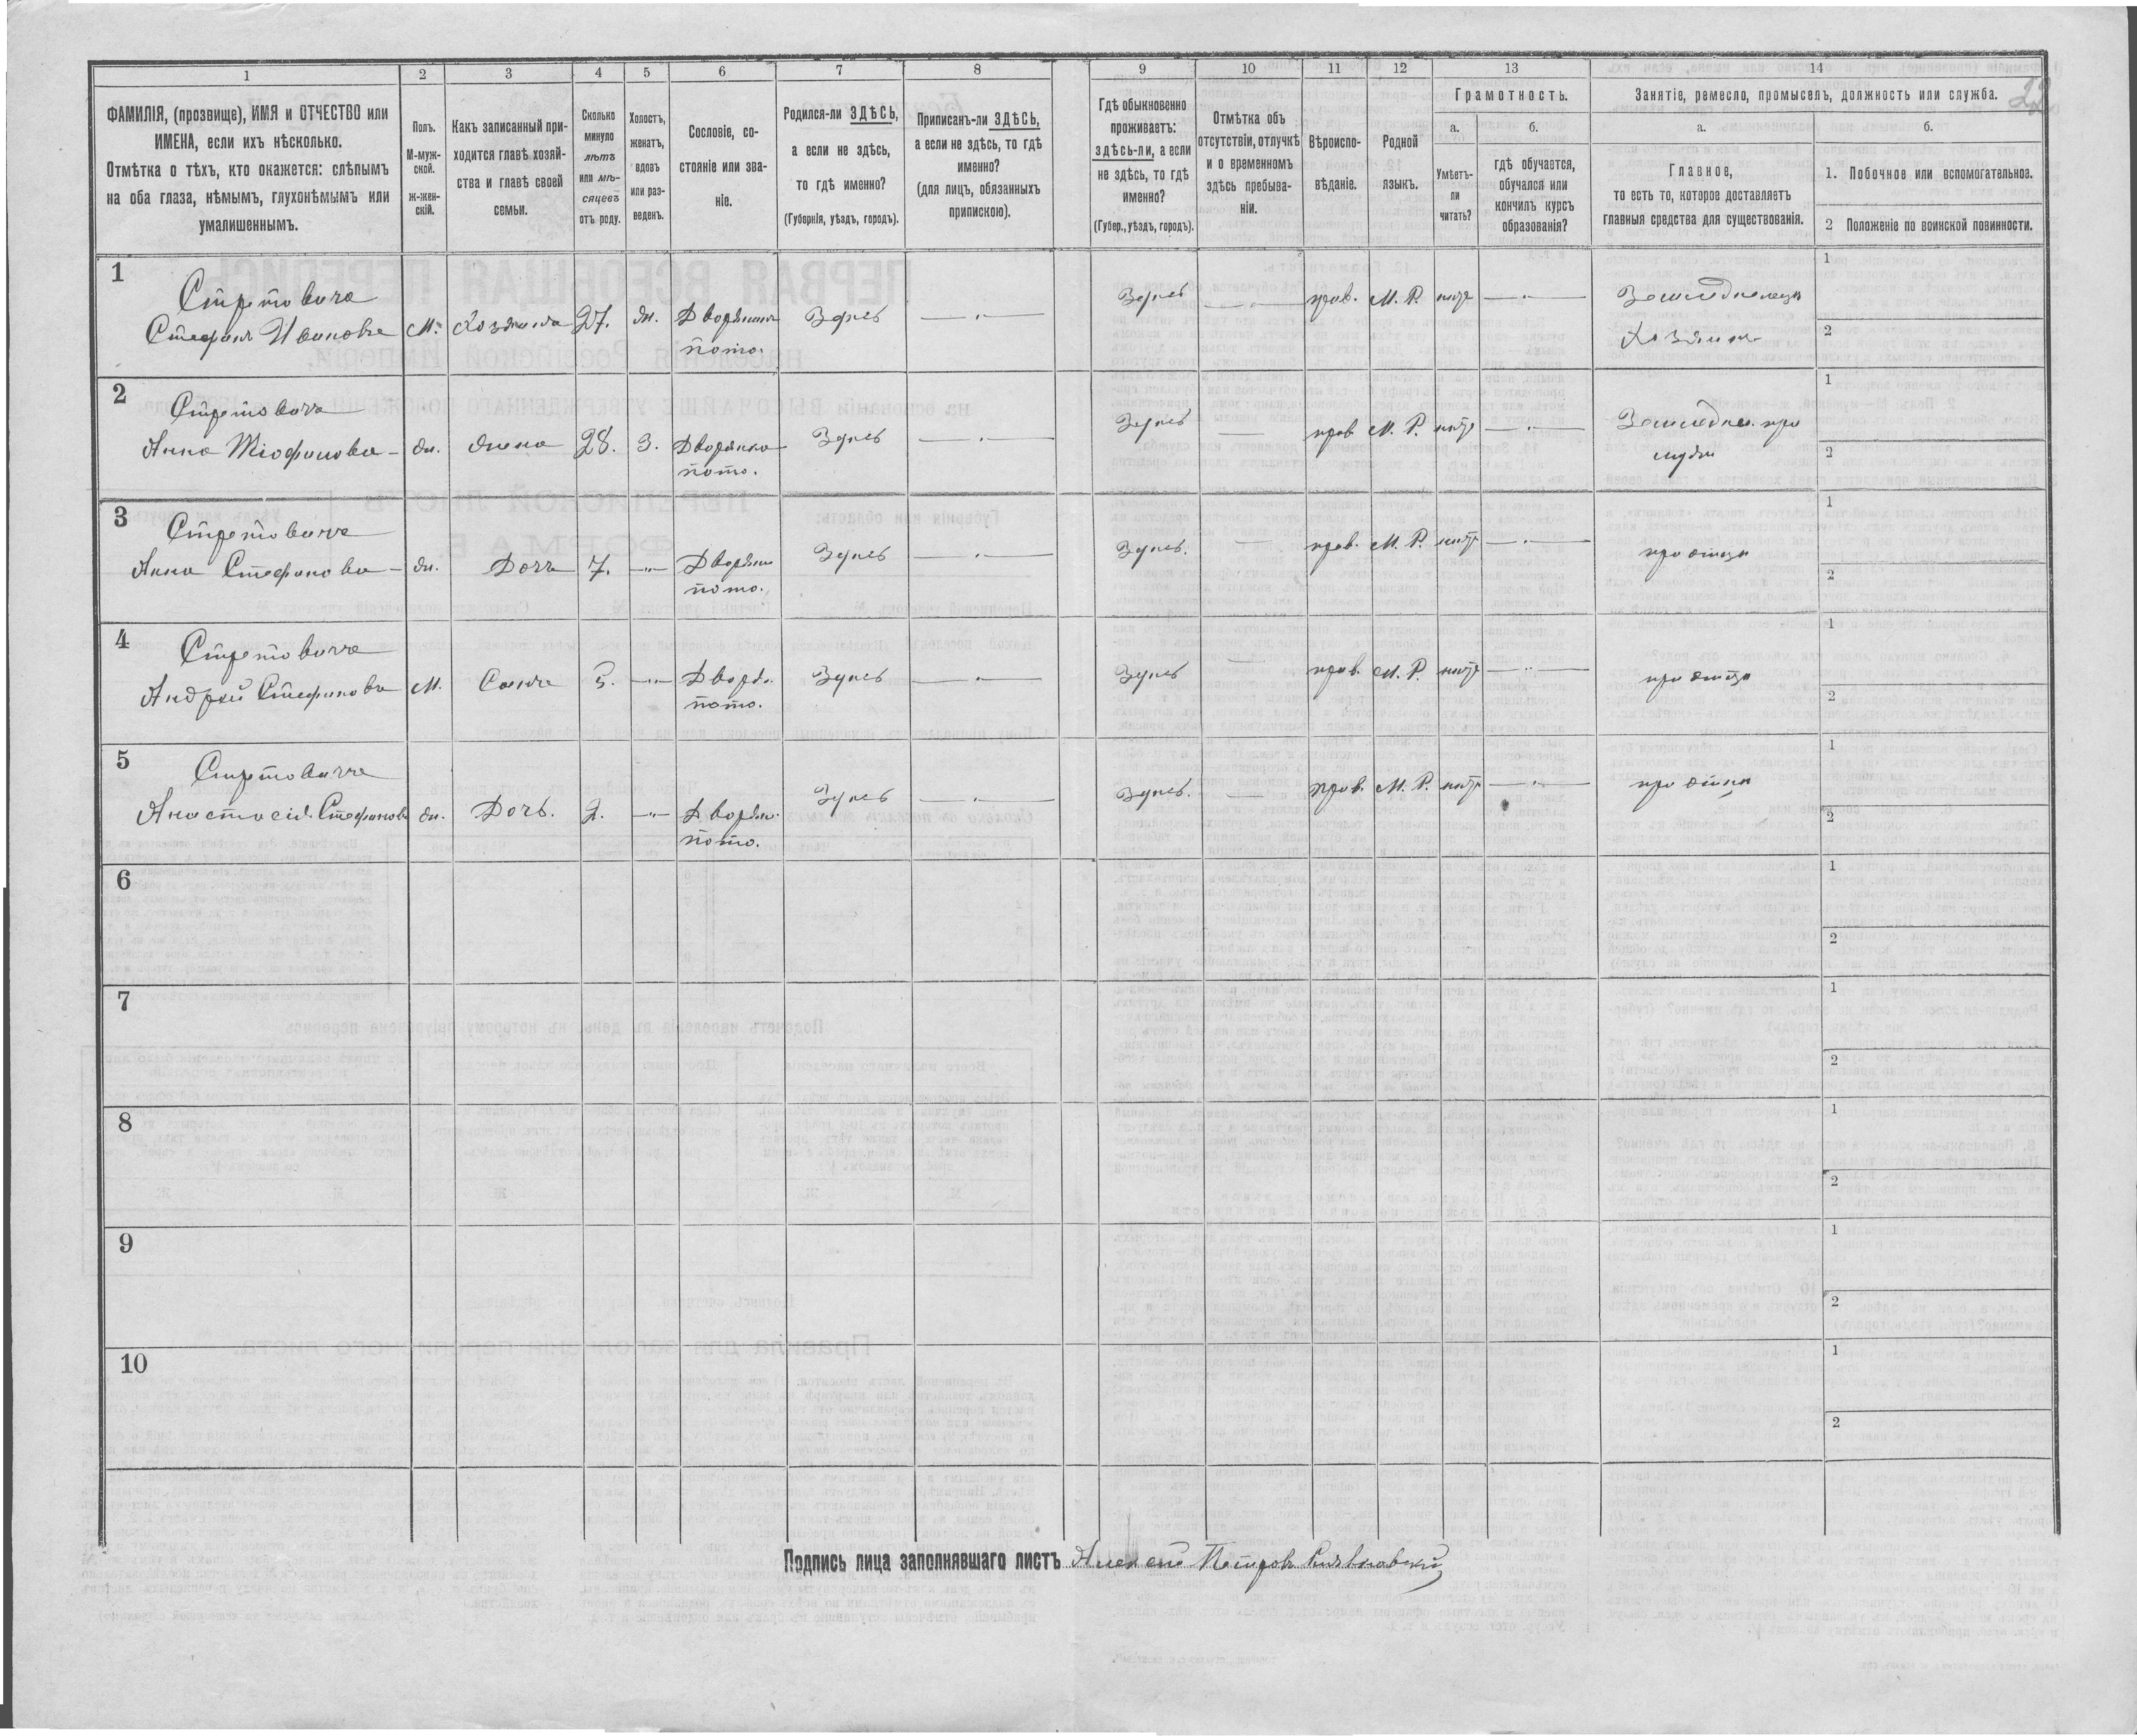 1
2
3
4
5
6
7
8
9
10
11
12
13
14
ФАМИЛІЯ, (прозвище), ИМЯ и ОТЧЕСТВО или
ИМЕНА, если ихъ нѣсколько.
Отмѣтка о тѣхъ, кто окажется: слѣпымъ
на оба глаза, нѣмымъ, глухонѣмымъ или
умалишеннымъ.
Полъ.
М-муж-
ской.
ж-жен-
скій.
Какъ записанный при-
ходится главѣ хозяй-
ства и главѣ своей
семьи.
Сколько
минуло
лѣтъ
или мѣ-
сяцевъ
отъ роду.
Холостъ,
женатъ,
вдовъ
или раз-
веденъ.
Сословіе, со-
стояніе или зва-
ніе.
Родился-ли ЗДѢСЬ,
а если не здѣсь,
то гдѣ именно?
(Губернія, уѣздъ, городъ).
Приписанъ-ли ЗДѢСЬ,
а если не здѣсь, то гдѣ
именно?
(для лицъ, обязанныхъ
припискою).
Гдѣ обыкновенно
проживаетъ:
здѣсь-ли, а если
не здѣсь, то гдѣ
именно?
(Губер., уѣздъ, городъ).
Отмѣтка объ
отсутствіи, отлучкѣ
и о временномъ
здѣсь пребыва-
ніи.
Вѣроиспо-
вѣданіе.
Родной
языкъ.
Грамотность.
а.
Умѣетъ-
ли
читать?
б.
гдѣ обучается,
обучался или
кончилъ курсъ
образованія?
Занятіе, ремесло, промыселъ, должность или служба.
а.
Главное,
то есть то, которое доставляетъ
главныя средства для существованія.
б.
1. Побочное или вспомогательное.
2 Положеніе по воинской повинности.
1
Стефанъ Ивановъ
М.
Хозяинъ
27.
ж.
Дворянинъ
пото.
Здѣсь
Здѣсь
прав.
М. Р.
нѣтъ
Земледѣлецъ
Хозяинъ
1
2
2
Анна
ж.
жена
28.
З.
Дворянка
пото.
Здѣсь
Здѣсь
прав
М. Р.
нѣтъ
Земледѣл. при
мужѣ
1
2
3
Анна Стефанова
ж.
Дочь
7.
Дворян
пото.
Здѣсь
Здѣсь.
прав.
М. Р.
нѣтъ
при отцѣ
1
2
4
Андрей Стефановъ
М.
Сынъ
5.
Дворя.
пото.
Здѣсь
Здѣсь
прав.
М. Р.
нѣтъ
при отцѣ
1
2
5
Анастасія Стефанова
ж.
Дочь.
2.
Дворян.
пото.
Здѣсь
Здѣсь.
прав.
М. Р.
нѣтъ
при отцѣ
1
2
6
1
2
7
1
2
8
1
2
9
1
2
10
1
2
Подпись лица заполнявшаго листъ Алексѣй Петровъ